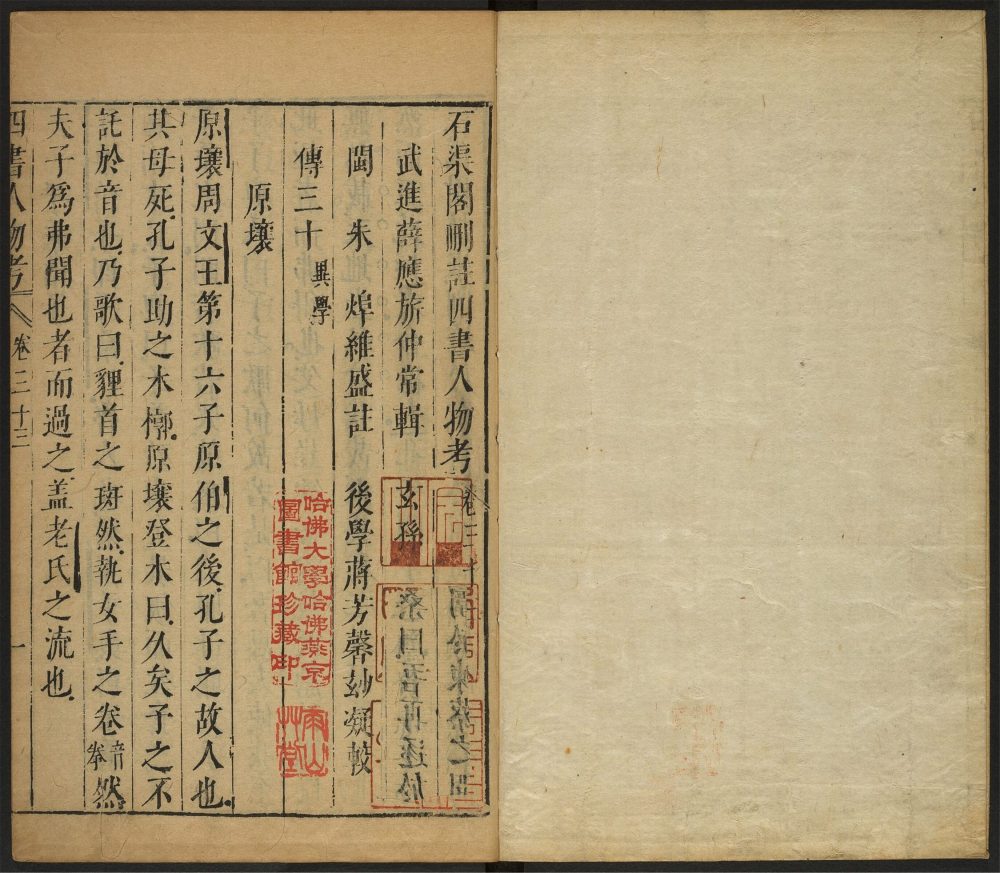 石渠閣刪註四書人物考卷三十
武進薛應旂仲常輯 玄孫
閩 朱 焞維盛註 後學蔣芳馨凝較
傳三十 異學
原壤
原壤周文王第十六子原伯之後孔子之故人也
其母死孔子助之木槨原壤登木曰久矣子之不
託於音也乃歌曰貍首之斑然執女手之卷音拳然
夫子爲弗聞也者而過之盖老氏之流也
四書人物考 卷三十三 一
哈佛大學哈佛燕京
圖書館珍藏印